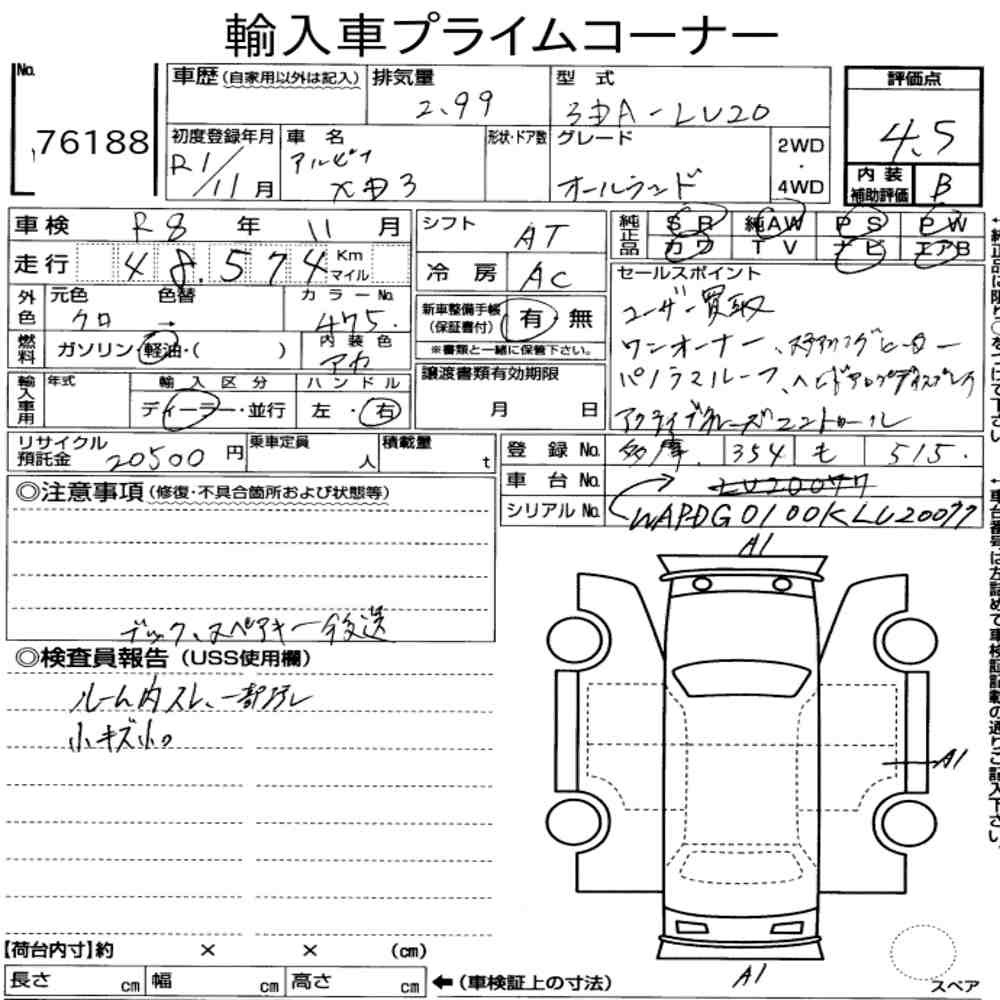 輸入車プライムコーナー
No. 76188
車歴(自家用以外は記入)
排気量 2.99
型式 3DA-LV20
評価点 4.5
初度登録年月 R1/11月
車名 アルピナ XD3
形状・ドア数
グレード オールランド
2WD・4WD
内装補助評価 B
車検 R8年 11月
走行 48,574 Km マイル
シフト AT
冷房 AC
純正品 SR 純AW PS PW
カワ TV ナビ エアB
外色 元色 クロ 色替 → カラーNo. 475.
燃料 ガソリン・軽油・( )
内装色 アカ
新車整備手帳(保証書付) 有・無
※書類と一緒に保管下さい。
セールスポイント
ユーザー買取
ワンオーナー、ステアリングヒーター
パノラマルーフ、ヘッドアップディスプレイ
アクティブクルーズコントロール
輸入車用 年式
輸入区分 ディーラー・並行
ハンドル 左・右
譲渡書類有効期限 月 日
リサイクル預託金 20500円
乗車定員 人
積載量 t
登録No. 多摩. 354 も 515.
車台No. LV20077
シリアルNo. WAPDG0100KLV20077
◎注意事項(修復・不具合箇所および状態等)
ブック、スペアキー後送
◎検査員報告(USS使用欄)
ルーム内スレ、一部汚レ
小キズ小凹
A1
A1
A1
【荷台内寸】約 × × (cm)
長さ cm 幅 cm 高さ cm ←(車検証上の寸法)
スペア